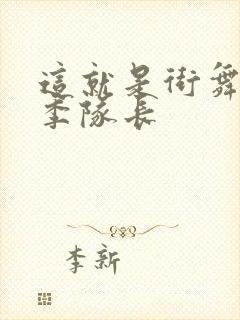 這就是街舞
李隊長
李新